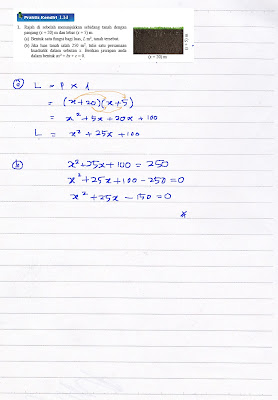 Praktis Kendiri 1.1d
1. Rajah di sebelah menunjukkan sebidang tanah dengan
panjang (x + 20) m dan lebar (x + 5) m.
(a) Bentuk satu fungsi bagi luas, L m², tanah tersebut.
(b) Jika luas tanah ialah 250 m², tulis satu persamaan
kuadratik dalam sebutan x. Berikan jawapan anda
dalam bentuk ax² + bx + c = 0.
(x + 20) m
(a) L = P x l
= (x+20)(x+5)
= x² + 5x + 20x + 100
L = x² + 25x + 100
(b) x² + 25x + 100 = 250
x² + 25x + 100 - 250 = 0
x² + 25x - 150 = 0